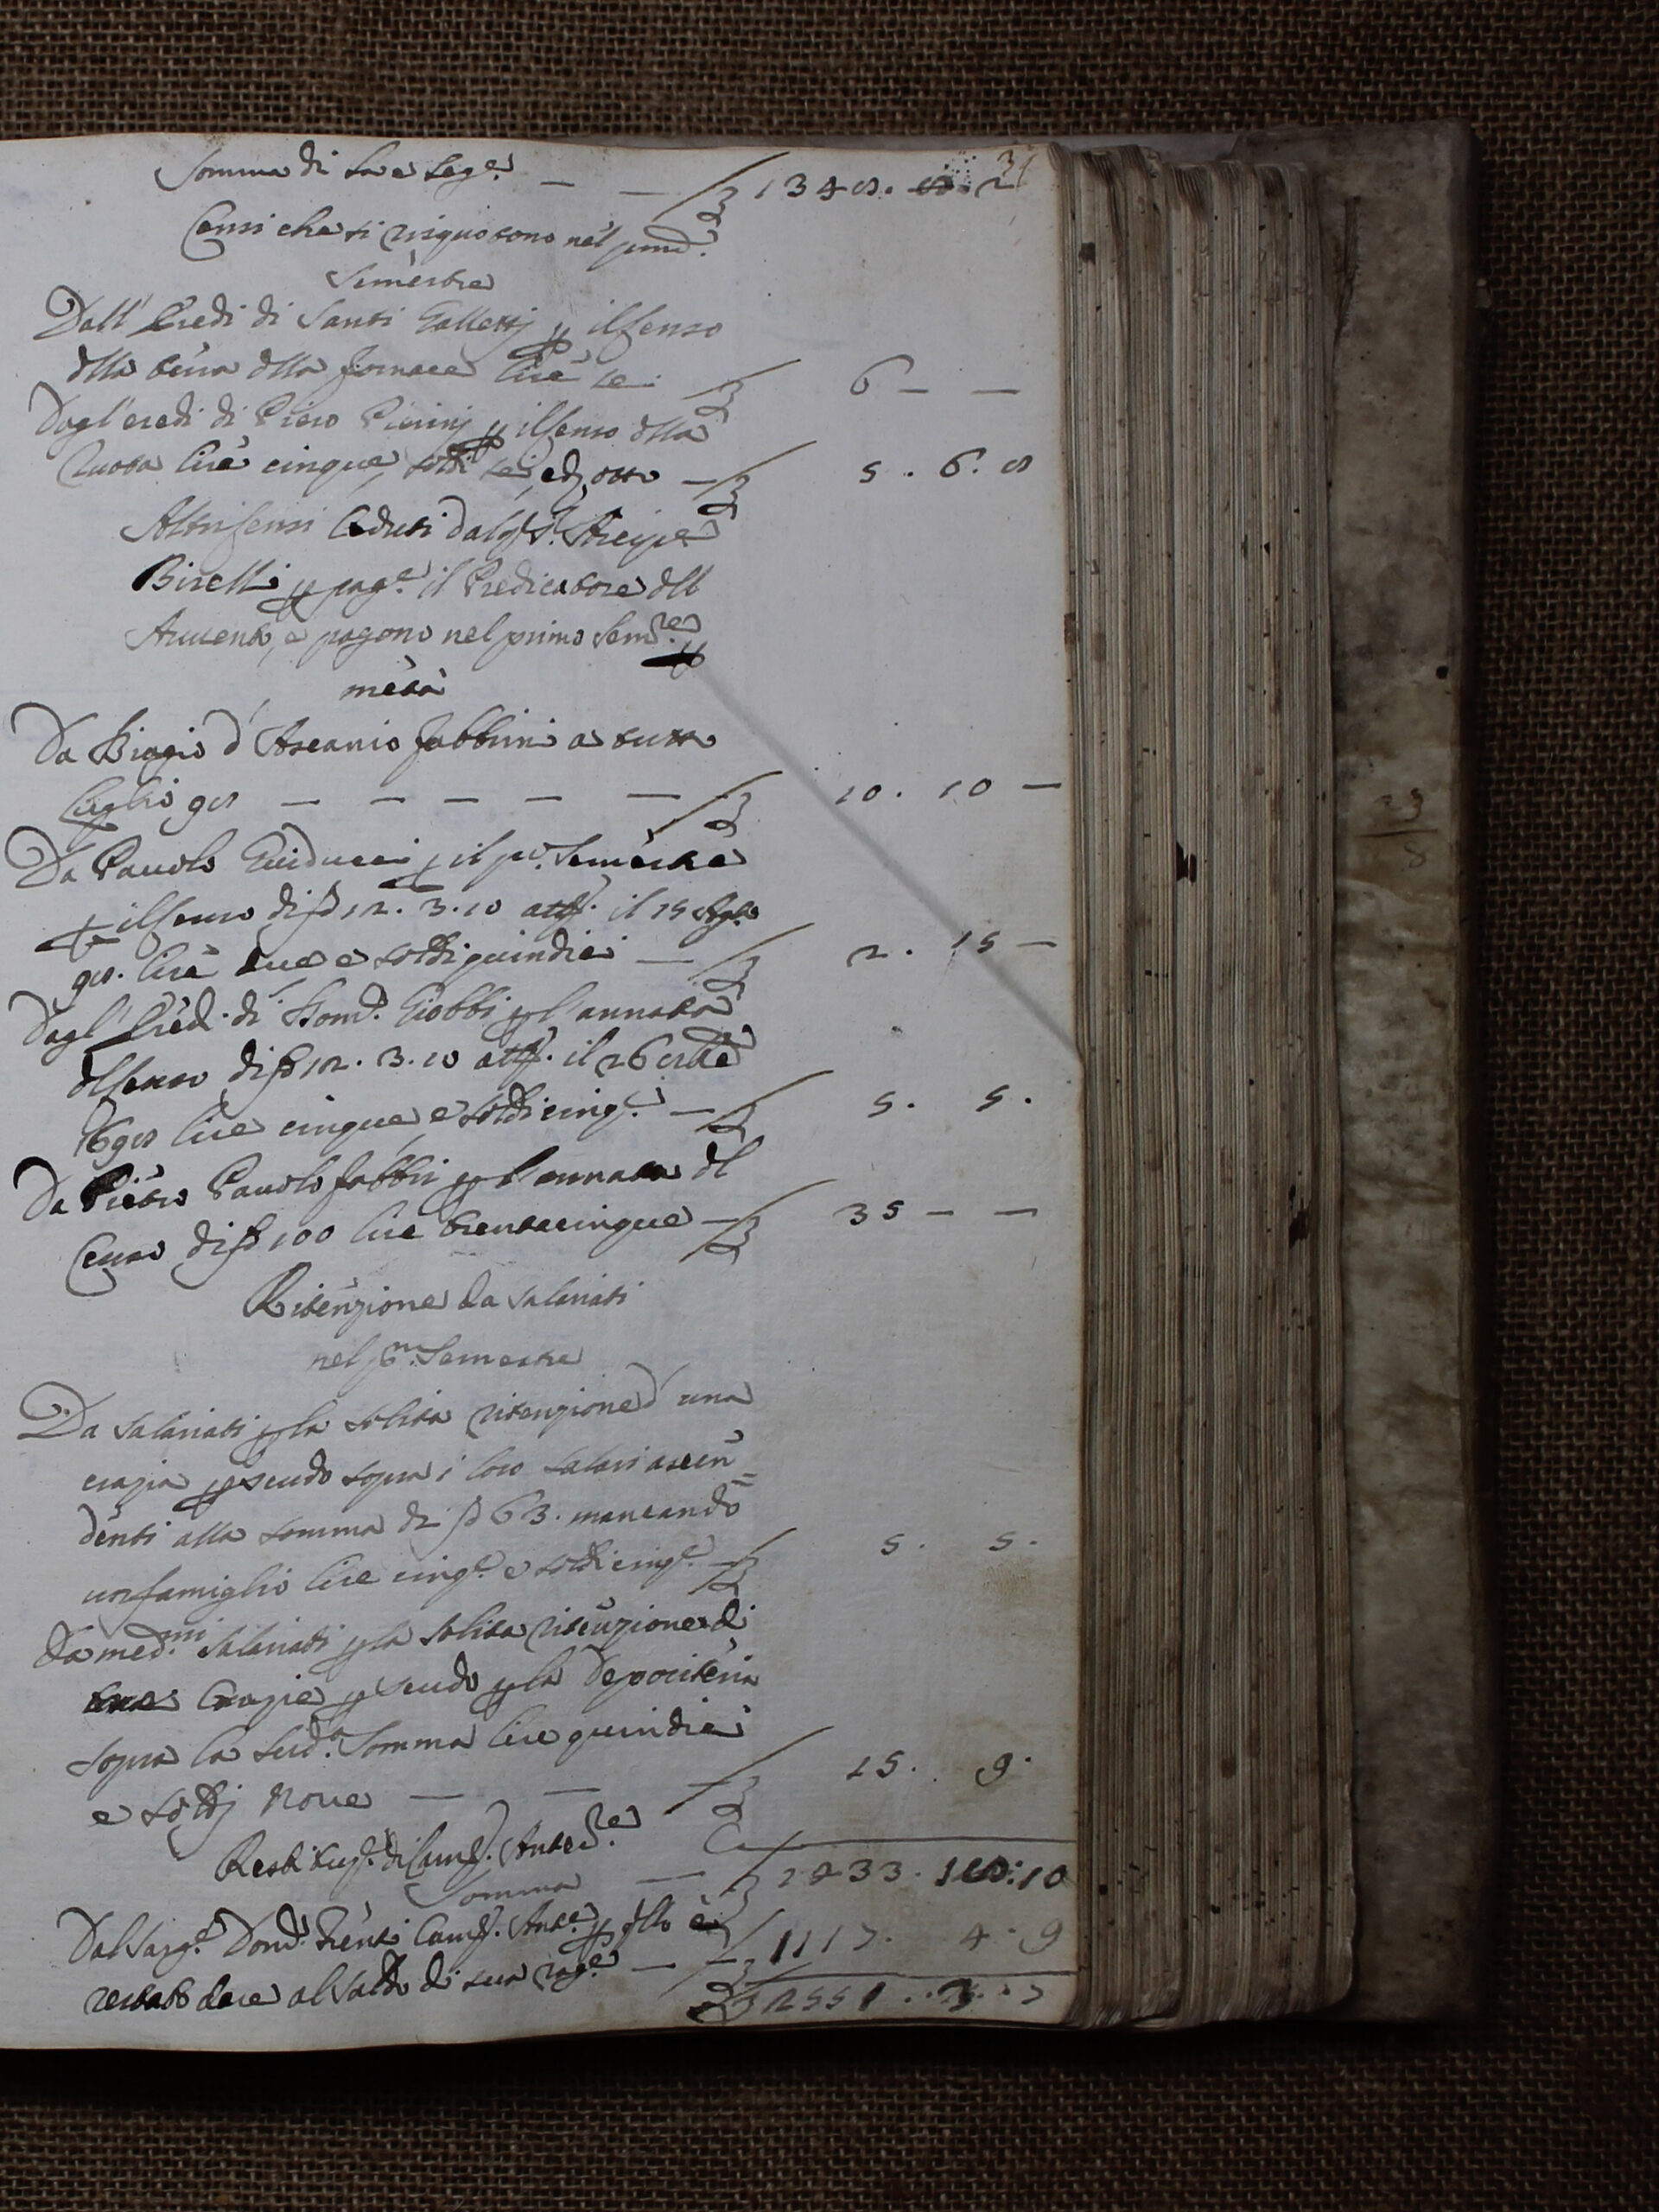 Somma di là e seg.e — — £ 1348. 8. 2
31
Censi che si riscuotono nel pmo.
Semestre
Dall' Eredi di Santi Galletti p il Censo
dlla terra dlla fornace lire sei £ 6 — —
Dagl'eredi di Piero Pierini p il Censo dlla
lire cinque, soldi sei, e d. otto — £ 5 . 6. 8
Altri Censi Ceduti dal
Birelli p pag.e il Predicatore dll
Auuento, e pagono nel primo Sem.re p
metà
Da Biagio d'Ascanio fabbrini a tutto
Luglio 98 — — — — — £ 10. 10 —
Da Pauolo Guiducci p il p.o Semestre
p il Censo di sd 12. 3. 10 att. il 15 Ag.to
98. lire due e soldi quindici — £ 2. 15 —
Dagl' Eredi di Dom.co Giobbi p l'annata
dl Censo di sd 12. 3. 10 att. il 26 8bre
1698 lire cinque e soldi cinq.e — £ 5. 5.
Da Pietro Pauolo fabbri p l'annata dl
Censo di sd 100 lire trentacinque — £ 35 — —
Ritenzione da salariati
nel p.mo Semestre
Da Salariati p la solita ritenzione d'una
crazia p scudo sopra i loro salari ascen=
denti alla somma di sd 63. mancando
un famiglio lire cinq.e e soldi cinq.e — £ 5. 5.
Da med.mi Salariati p la solita ritenzione di
tre Crazie p scudo p la Depositeria
sopra la sud.a Somma lire quindici
e soldi noue — — £ 15. 9.
Resti di Cam.o Anted.re
Somma — £ 1433. 18: 10
Dal Sarg.e Dom.co Camo. Ant.e p tto è
restato dare al saldo di sua rag.e — — £ 1117. 4. 9
£ 2551. 3. 7